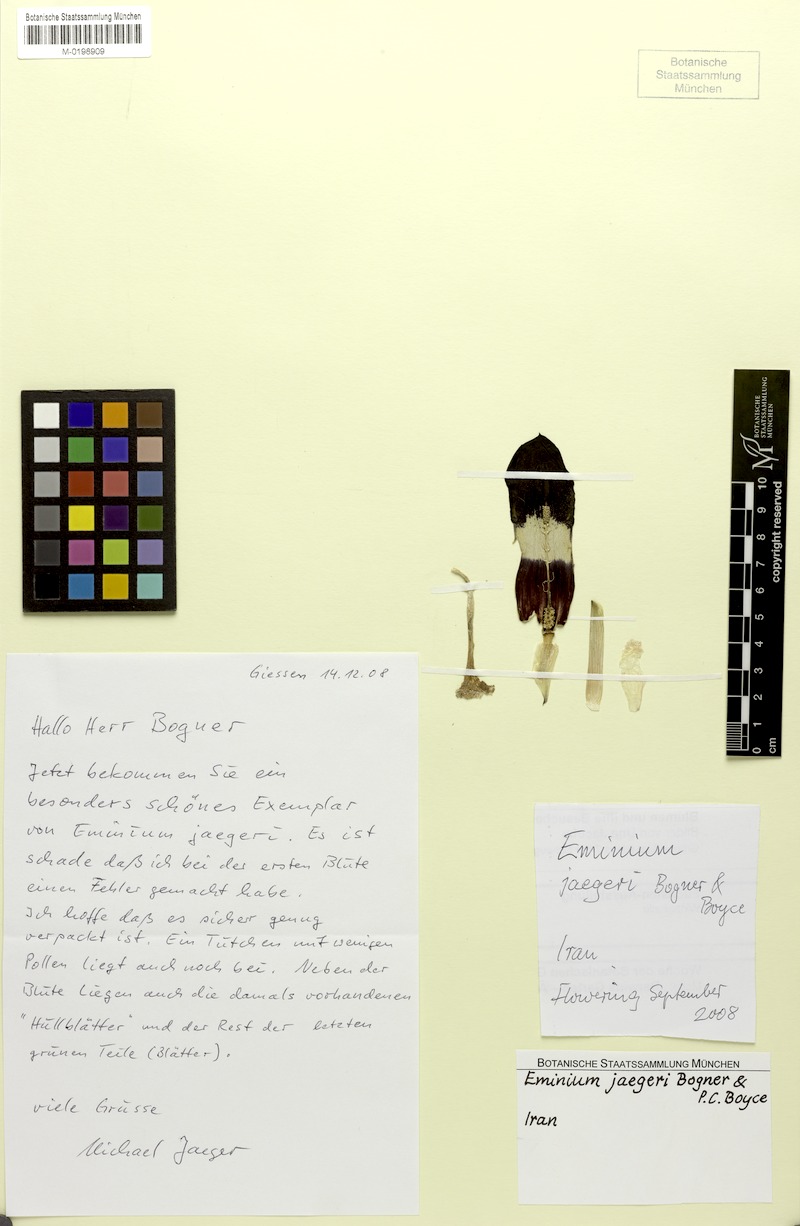 Botanische Staatssammlung München
M-0196909
Botanische
Staatssammlung
München
BOTANISCHE
STAATSSAMMLUNG
MÜNCHEN
copyright reserved
10
9
8
7
6
5
4
3
2
1
0
cm
Giessen 14.12.08
Hallo Herr Bogner
Jetzt bekommen Sie ein
besonders schönes Exemplar
von Eminium jaegeri. Es ist
schade daß ich bei der ersten Blüte
einen Fehler gemacht habe.
Ich hoffe daß es sicher genug
verpackt ist. Ein Tütchen mit wenigen
Pollen liegt auch noch bei. Neben der
Blüte liegen auch die damals vorhandenen
"Hüllblätter" und der Rest der letzten
grünen Teile (Blätter).
viele Grüsse
Michael Jaeger
Eminium
jaegeri Bogner &
Boyce
Iran
Flowering September
2008
BOTANISCHE STAATSSAMMLUNG MÜNCHEN
Eminium jaegeri Bogner &
P.C. Boyce
Iran